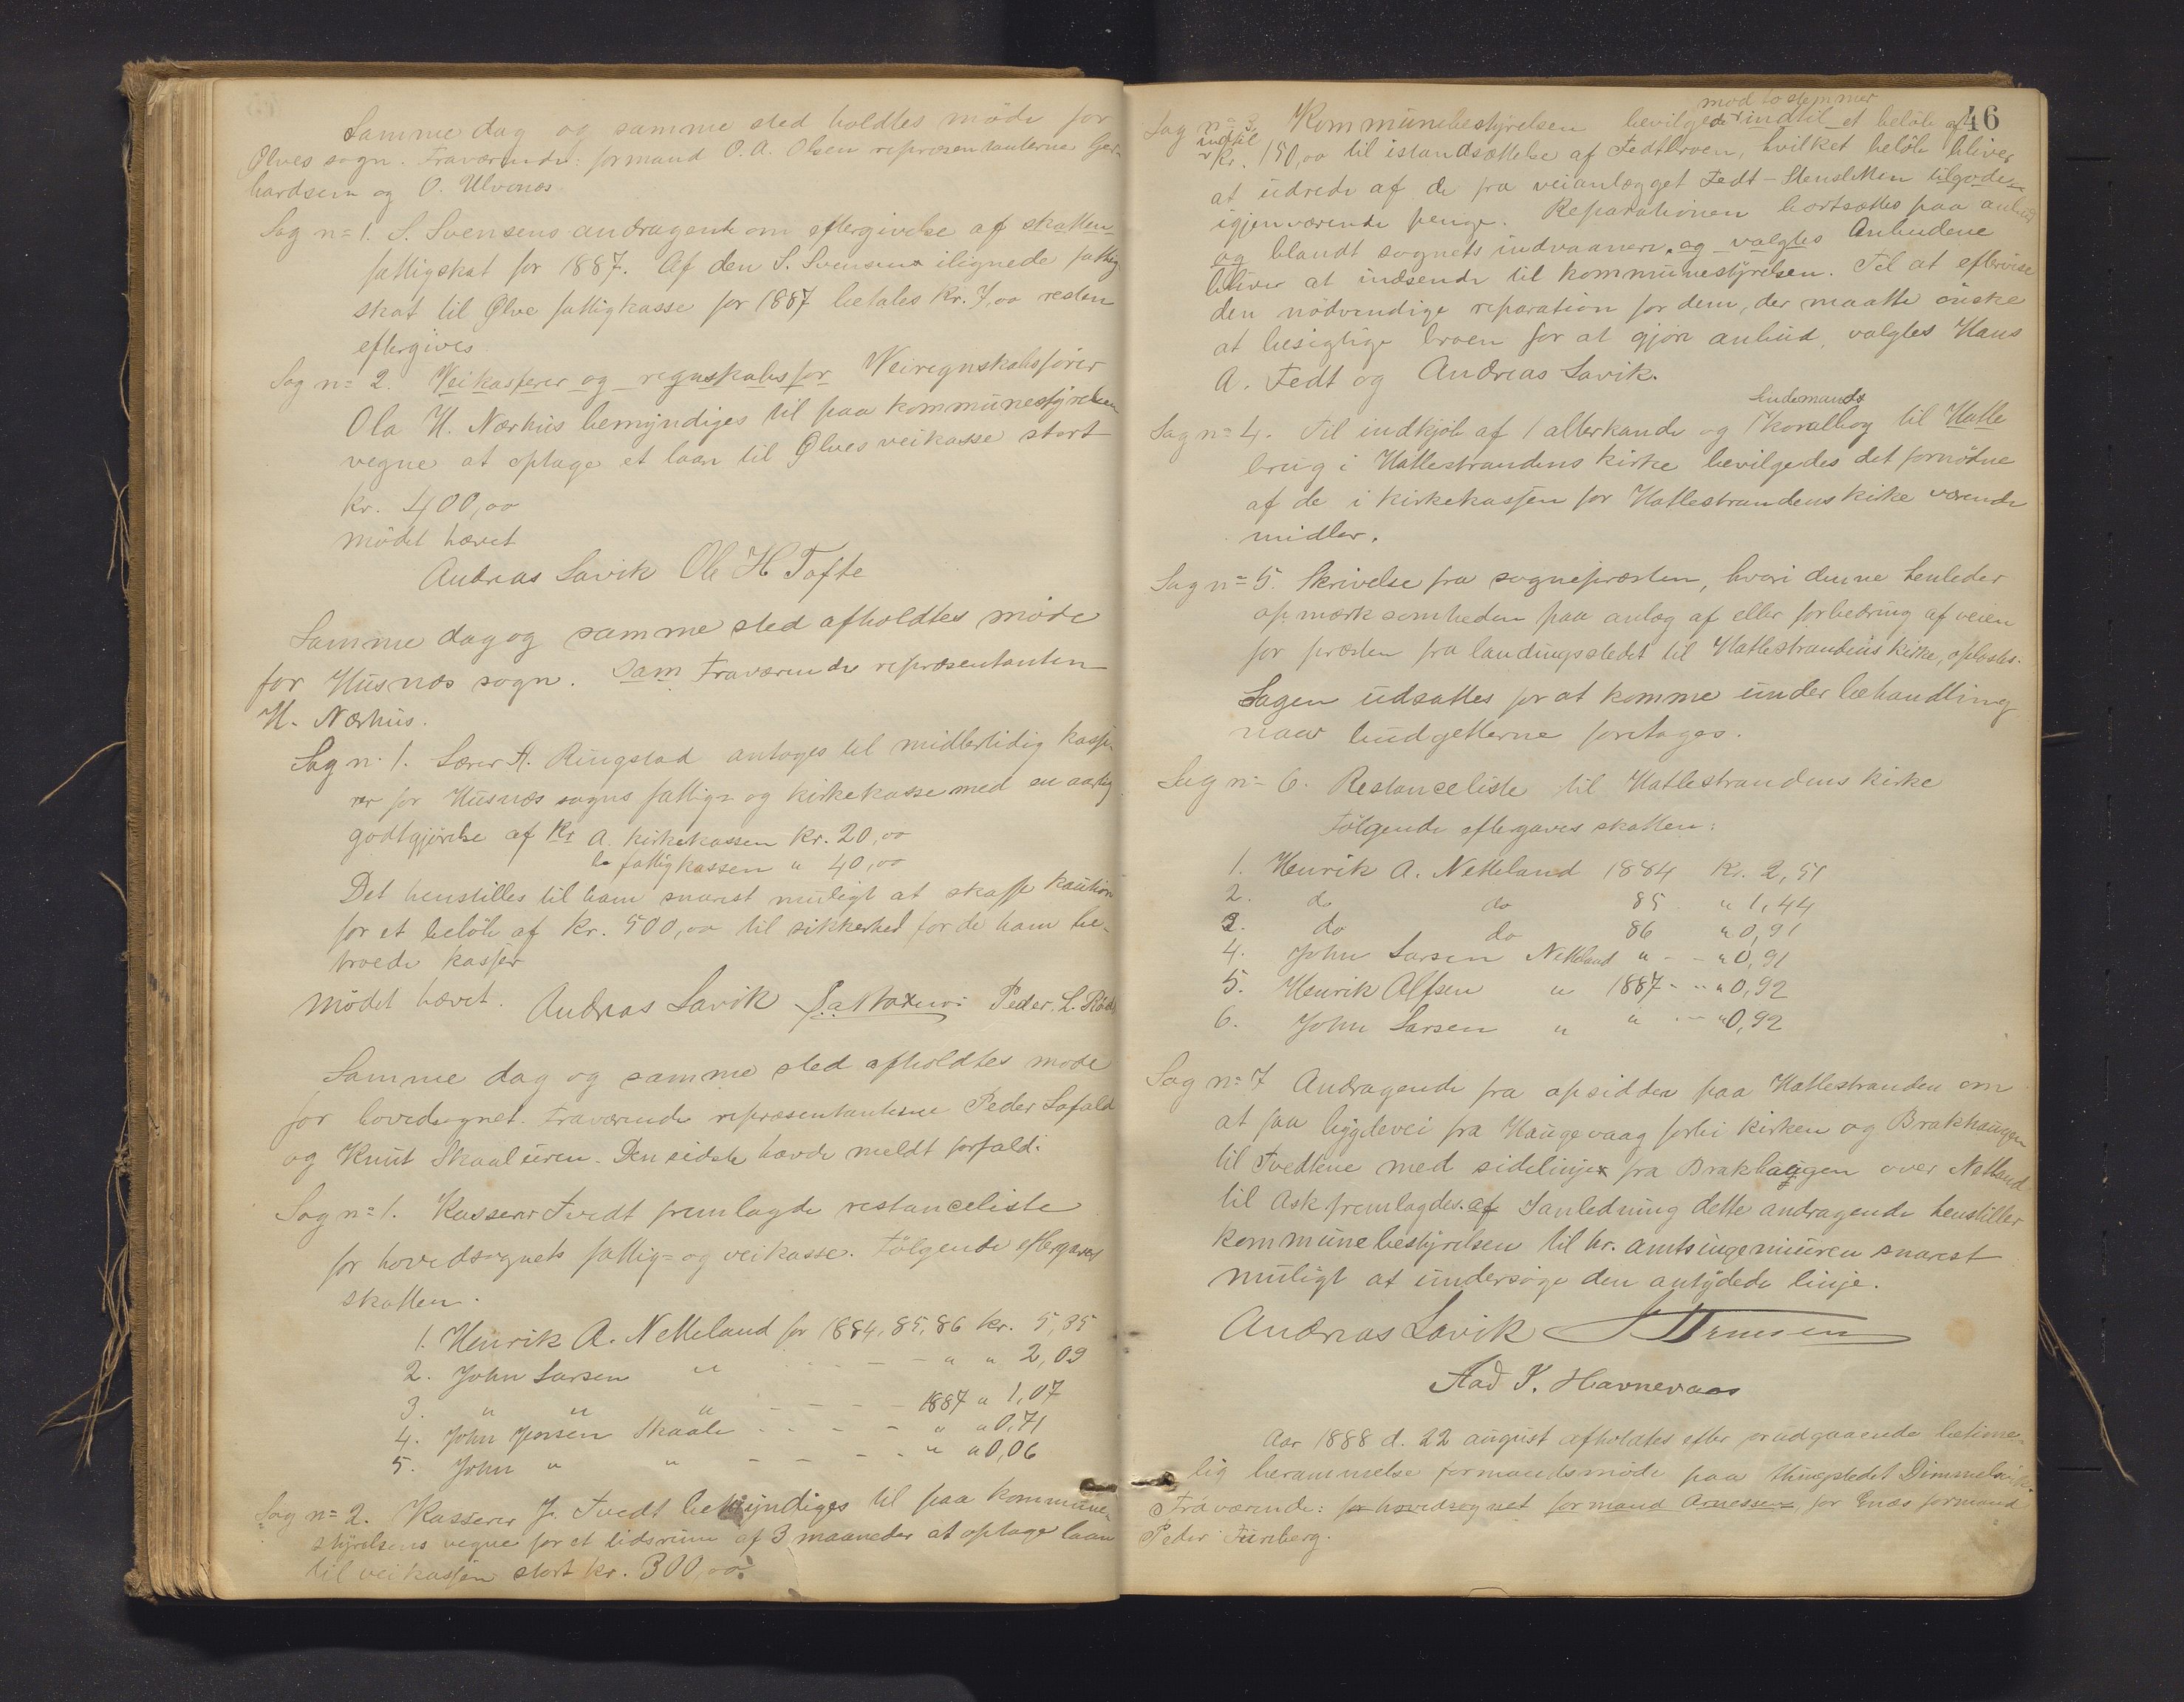 Samme dag og samme sted holdtes möde for
Ølves sogn. Fraværende: formand O. A. Olsen repræsentanterne Ger-
hardsen og O. Ulvenæs.
Sag nº 1. S. Svensens andragende om eftergivelse af skatten
fattigskat for 1887. Af den S. Svensen ilignede fattig-
skat til Ølve fattigkasse for 1887 betales Kr. 7,00 resten
eftergives
Sag nº 2. Veikasserer og regnskabsfor Veiregnskabsfører
Ola H. Nærhus bemyndiges til paa kommunestyrelsens
vegne at optage et laan til Ølves veikasse stort
Kr. 400,00
Mödet hævet
Andreas Lavik Ole H Tofte
Samme dag og samme sted afholdtes möde
for Husnæs sogn. Sam Fraværende repræsentanten
H. Nærhus.
Sag nº 1. Lærer A. Ringstad antages til midlertidig kasse-
rer for Husnæs sogns fattig- og kirkekasse med en aarlig
godtgjörelse af Kr a. kirkekassen Kr. 20,00
b. fattigkassen " 40,00
Det henstilles til ham snarest muligt at skaffe kaution
for et belöb af Kr. 500,00 til sikkerhed for de ham be-
troede kasser
Mödet hævet. Andreas Lavik Peder. L. Röd
Samme dag og samme sted afholdtes möde
for hovedsognet. Fraværende repræsentanterne Peder Lofald
og Knut Skaaluren. Den sidste havde meldt forfald.
Sag nº 1. Kasserer Tvedt fremlagde restanceliste
for hovedsognets fattig- og veikasse. Fölgende eftergaves
skatten.
1. Henrik A. Netteland for 1884, 85, 86 kr. 5,35
2. John Larsen " - - - " " 2,09
3. " " " - - - - 1887 " 1,07
4. John Jensen Skaale - - - - " " 0,71
5. John " " - - - - " " 0,06
Sag nº 2. Kasserer J. Tvedt bemyndiges til paa kommune-
styrelsens vegne for et tidsrum af 3 maaneder at optage laan
til veikassen stort kr. 300,00.
46
mod to stemmer
Sag nº 3. Kommunebestyrelsen bevilgede indtil et belöb af
indtil
Kr. 150,00 til istandsættelse af Fedtbroen, hvilket belöb bliver
at udrede af de fra veianlægget Fedt-Stensletten tilgode-
igjenværende penge. Reparationen bortsættes paa anbud
og blandt sognets indvaanere. og valgtes Anbudene
bliver at indsende til kommunestyrelsen. Til at eftervise
den nödvendige reparation for dem, der maatte önske
at besigtige broen for at gjöre anbud, valgtes Hans
A. Fedt og Andreas Lavik.
Lindemands
Sag nº 4. Til indkjöb af 1 alterkande og 1 koralbog til Hatle
brug i Hatlestrandens kirke bevilgedes det fornödne
af de i kirkekassen for Hatlestrandens kirke værende
midler.
Sag nº 5. Skrivelse fra sognepræsten, hvori denne henleder
opmærksomheden paa anlæg af eller forbedring af veien
for præsten fra landingsstedet til Hatlestrandens kirke, oplæstes.
Sagen udsattes for at komme under behandling
naar budgetterne foretages.
Sag nº 6. Restanceliste til Hatlestrandens kirke
Fölgende eftergaves skatten:
1. Henrik A. Netteland 1884 Kr. 2,51
2. do do 85 " 1,44
3. do do 86 " 0,91
4. John Larsen Netteland " - - " 0,91
5. Henrik Alfsen " 1887 - - " 0,92
6. John Larsen " " - - " 0,92
Sag nº 7 Andragende fra opsiddere paa Hatlestranden om
at faa bygdevei fra Haugevaag forbi kirken og Brakhaugen
til Tvedtene med sidelinje fra Brakhaugen over Netteland
til Ask fremlagdes. af I anledning dette andragende henstiller
kommunebestyrelsen til hr. amtsingeniören snarest
muligt at undersöge den antydede linje.
Andreas Lavik
Aad J. Havnevaas
Aar 1888 d. 22 august afholdtes efter forudgaaende betime-
lig berammelse formandsmöde paa thingstedet Dimmelsvik.
Fraværende: for hovedsognet formand Arnessen, for Enæs formand
Peder Furuberg.